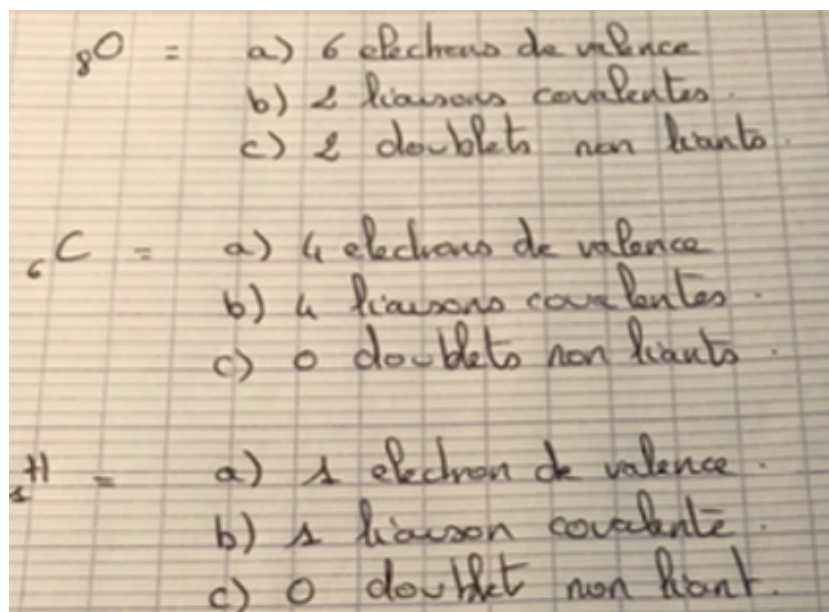 8O = a) 6 electrons de valence
b) 2 liaisons covalentes.
c) 2 doublets non liants.
6C = a) 4 electrons de valence
b) 4 liaisons covalentes.
c) 0 doublets non liants.
1H = a) 1 electron de valence.
b) 1 liaison covalente.
c) 0 doublet non liant.